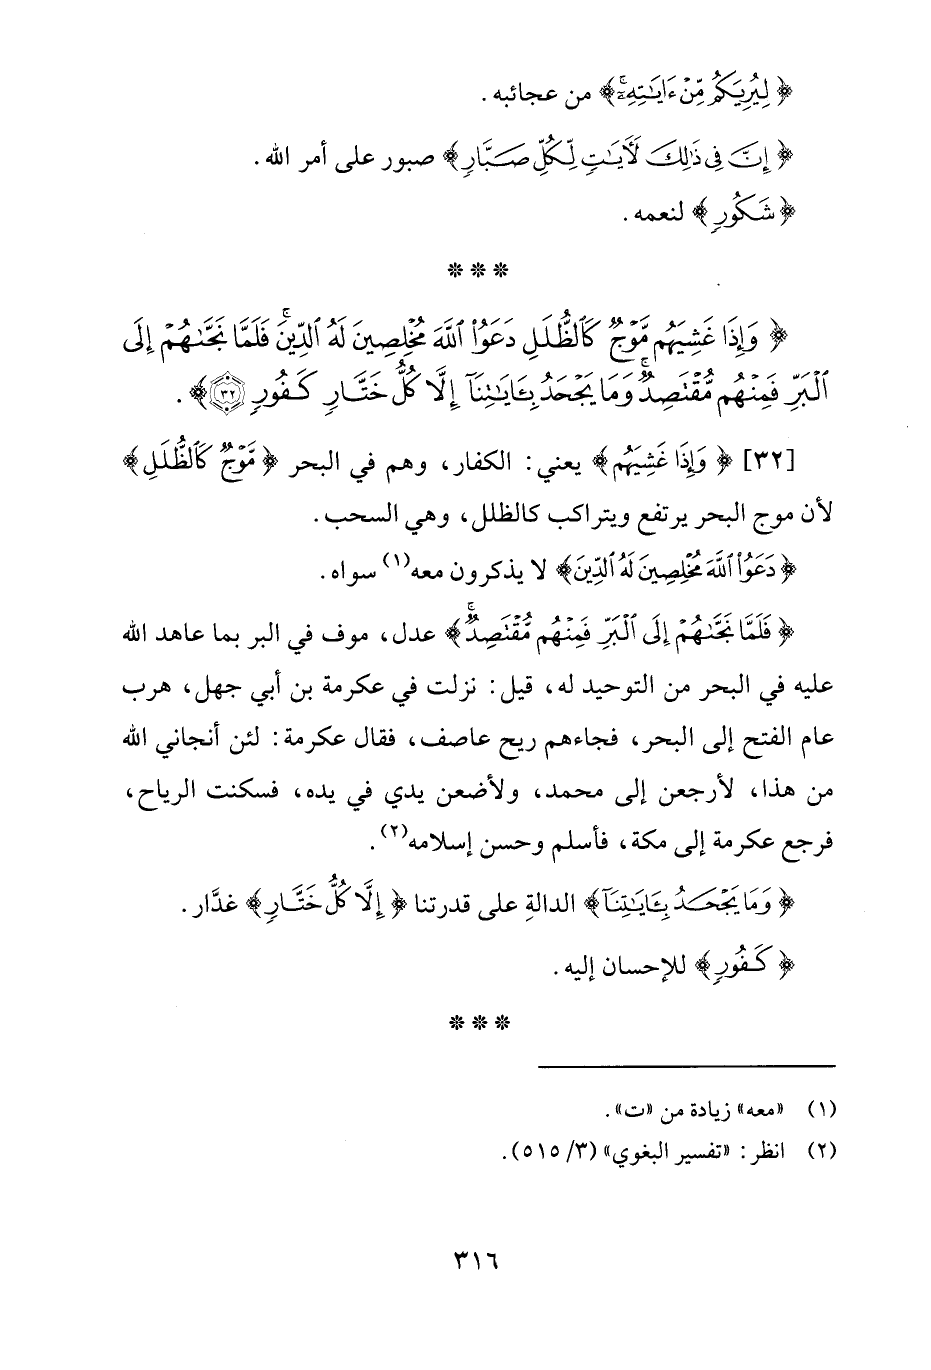 ﴿ لِيُرِيَكُم مِّنْ ءَايَٰتِهِۦٓۚ ﴾ من عجائبه .
﴿ إِنَّ فِى ذَٰلِكَ لَأٓيَٰتٍ لِّكُلِّ صَبَّارٍ ﴾ صبور على أمر الله .
﴿ شَكُورٍ ﴾ لنعمه .
* * *
﴿ وَإِذَا غَشِيَهُم مَّوْجٌ كَٱلظُّلَلِ دَعَوُا۟ ٱللَّهَ مُخْلِصِينَ لَهُ ٱلدِّينَۚ فَلَمَّا نَجَّىٰهُمْ إِلَى
ٱلْبَرِّ فَمِنْهُم مُّقْتَصِدٌۚ وَمَا يَجْحَدُ بِـَٔايَٰتِنَآ إِلَّا كُلُّ خَتَّارٍ كَفُورٍ ٣٢ ﴾ .
[٣٢] ﴿ وَإِذَا غَشِيَهُم ﴾ يعني : الكفار، وهم في البحر ﴿ مَّوْجٌ كَٱلظُّلَلِ ﴾
لأن موج البحر يرتفع ويتراكب كالظلل، وهي السحب .
﴿ دَعَوُا۟ ٱللَّهَ مُخْلِصِينَ لَهُ ٱلدِّينَ ﴾ لا يذكرون معه(١) سواه .
﴿ فَلَمَّا نَجَّىٰهُمْ إِلَى ٱلْبَرِّ فَمِنْهُم مُّقْتَصِدٌۚ ﴾ عدل، موف في البر بما عاهد الله
عليه في البحر من التوحيد له، قيل : نزلت في عكرمة بن أبي جهل، هرب
عام الفتح إلى البحر، فجاءهم ريح عاصف، فقال عكرمة : لئن أنجاني الله
من هذا، لأرجعن إلى محمد، ولأضعن يدي في يده، فسكنت الرياح،
فرجع عكرمة إلى مكة، فأسلم وحسن إسلامه(٢) .
﴿ وَمَا يَجْحَدُ بِـَٔايَٰتِنَآ ﴾ الدالةِ على قدرتنا ﴿ إِلَّا كُلُّ خَتَّارٍ ﴾ غدَّار .
﴿ كَفُورٍ ﴾ للإحسان إليه .
* * *
(١) «معه» زيادة من «ت» .
(٢) انظر : «تفسير البغوي» (٣/ ٥١٥) .
٣١٦